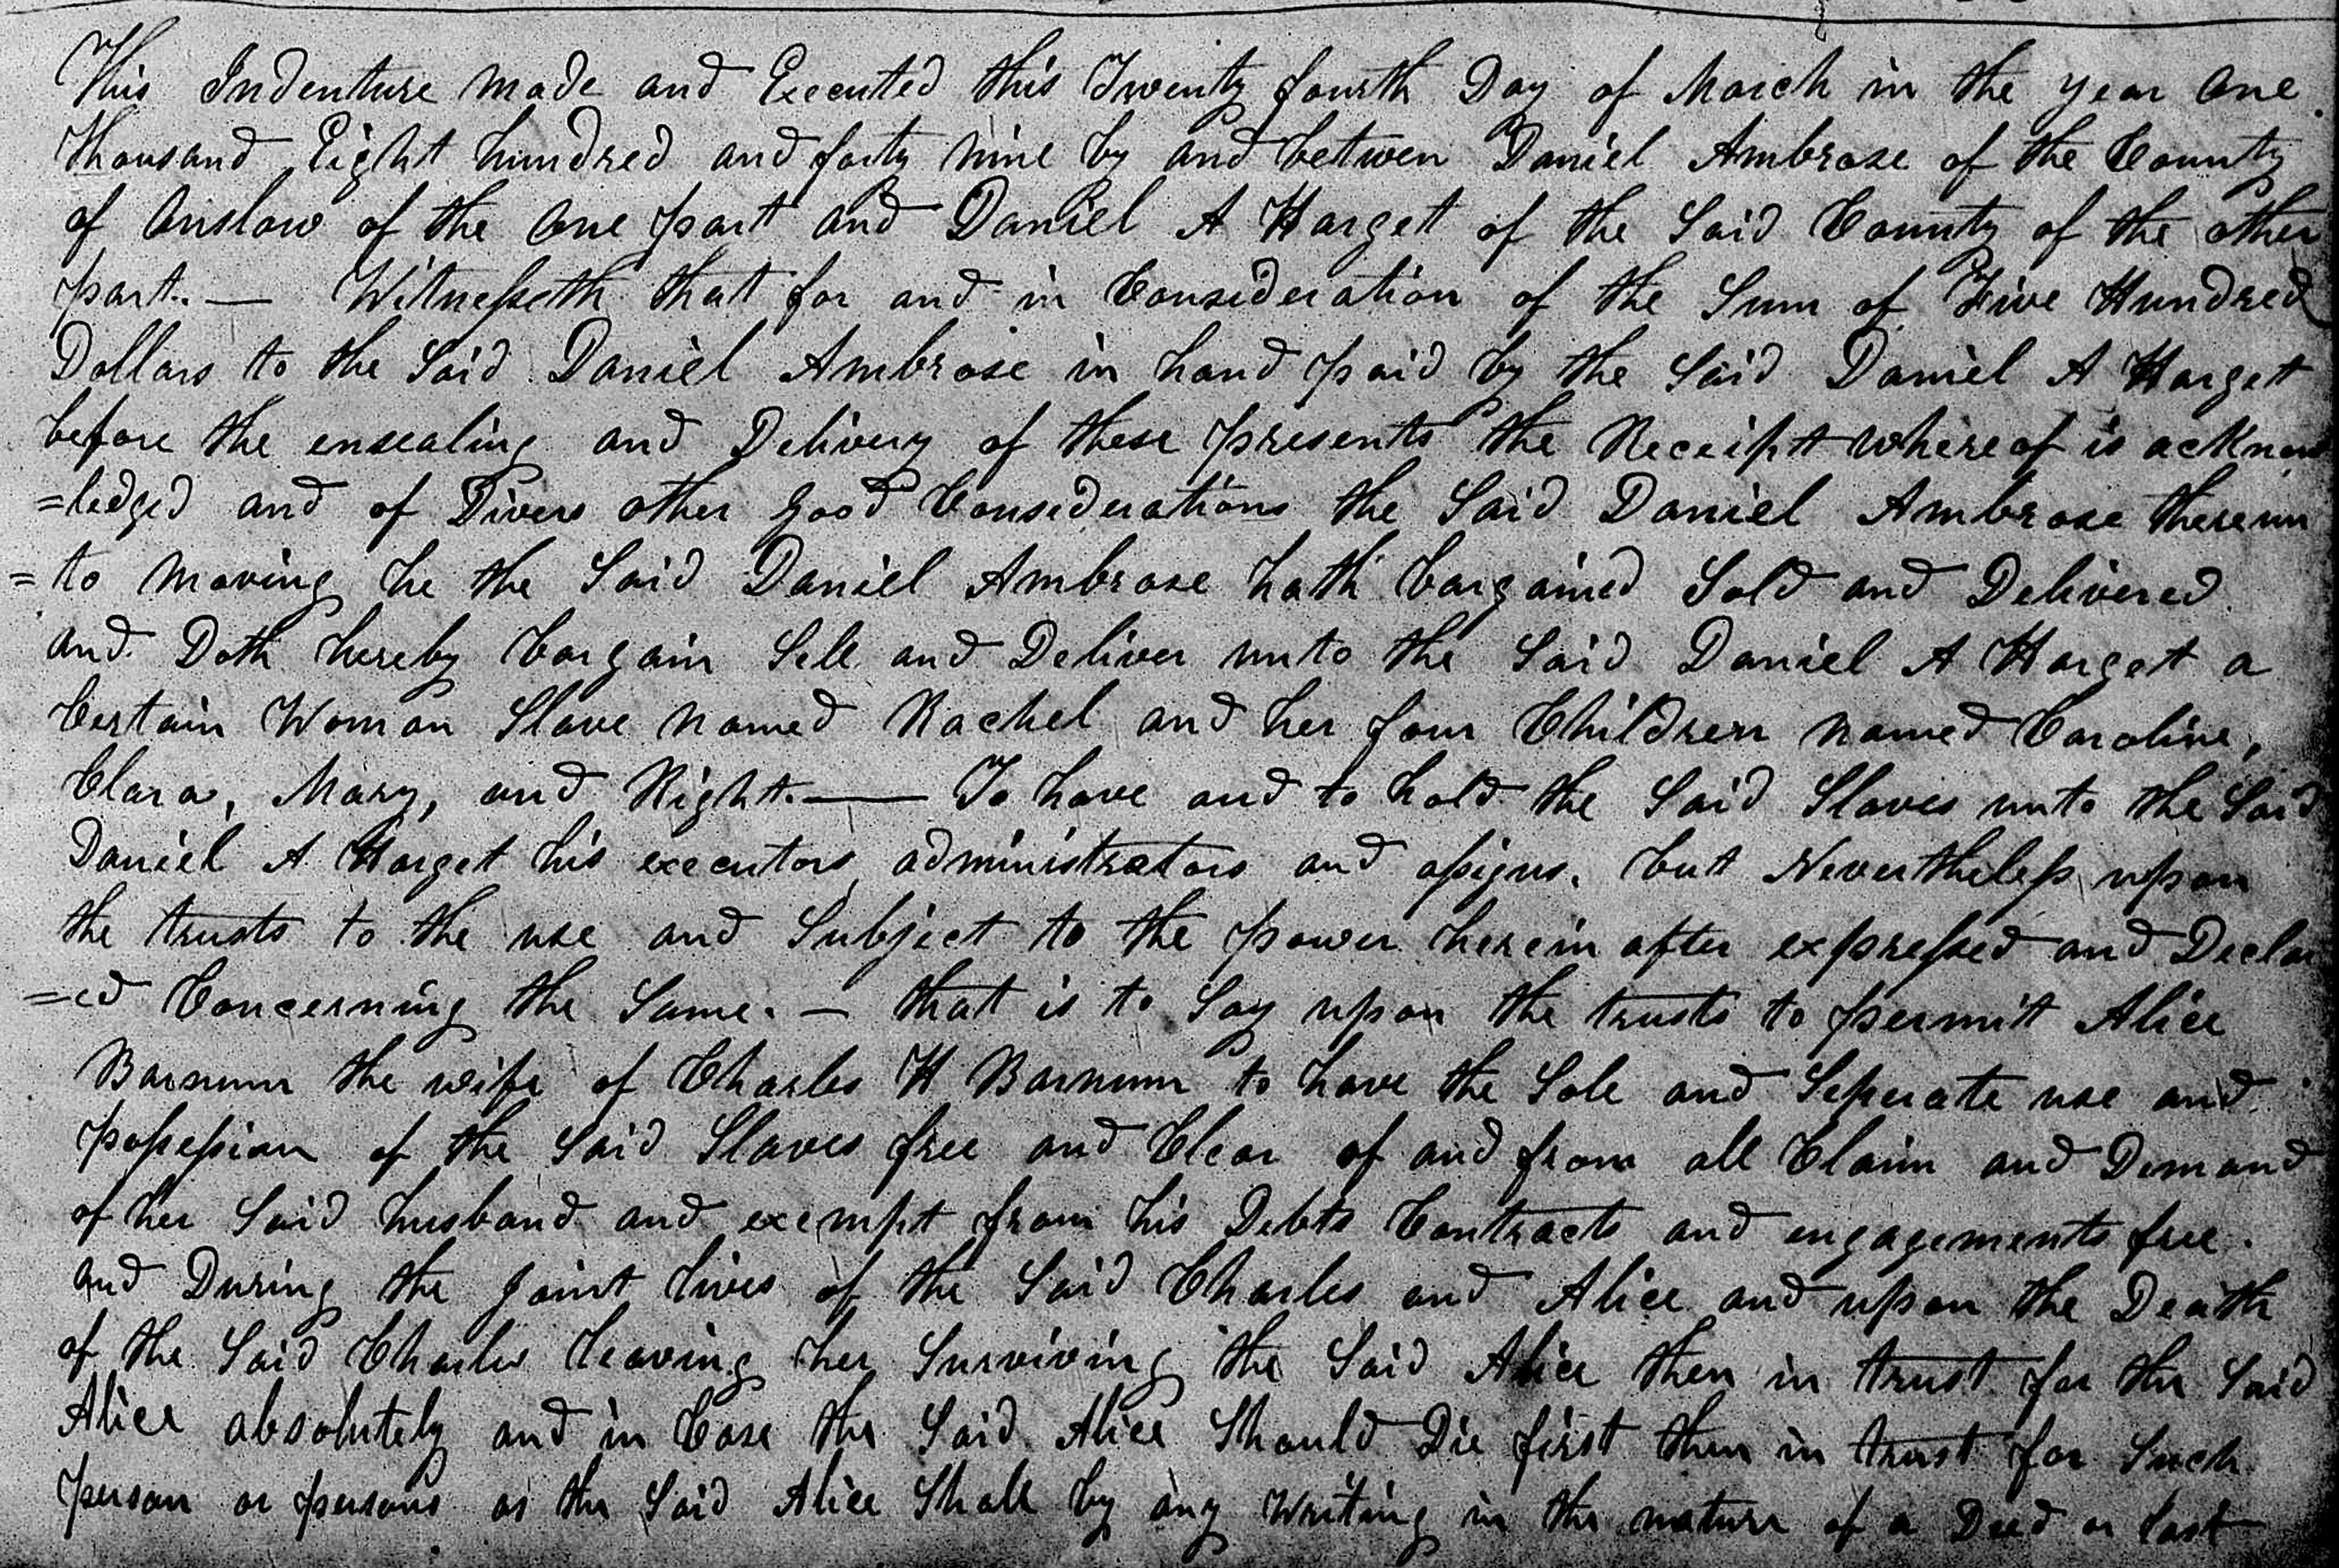 This Indenture made and Executed this Twenty fourth Day of March in the year One
Thousand Eight hundred and forty nine by and betwen Daniel Ambrose of the County
of Onslow of the One part and Daniel A Harget of the Said County of the other
part. — Witnesseth that for and in Consideration of the Sum of Five Hundred
Dollars to the Said Daniel Ambrose in hand paid by the Said Daniel A Harget
before the ensealing and Delivery of these presents the Receipt where of is acknow
=ledged and of Divers other good Considerations the Said Daniel Ambrose thereun
=to moving he the Said Daniel Ambrose hath bargained Sold and Delivered
and Doth hereby bargain Sell and Deliver unto the Said Daniel A Harget a
Certain Woman Slave named Rachel and her four Children named Caroline,
Clara, Mary, and Right. — To have and to hold the Said Slaves unto the Said
Daniel A Harget his executors administrators and assigns. but Nevertheless upon
the trusts to the use and Subject to the power herein after expressed and Declar
=ed Concerning the Same. — that is to Say upon the trusts to permitt Alice
Barnum the wife of Charles H Barnum to have the Sole and Seperate use and
possession of the Said Slaves free and Clear of and from all Claim and Demand
of her Said husband and exempt from his Debts Contracts and engagements free.
and During the joint lives of the Said Charles and Alice and upon the Death
of the Said Charles leaving her Surviving the Said Alice then in trust for the Said
Alice absolutely and in Case the Said Alice Should Die first then in trust for Such
person or persons as the Said Alice Shall by any Writing in the nature of a Deed or last